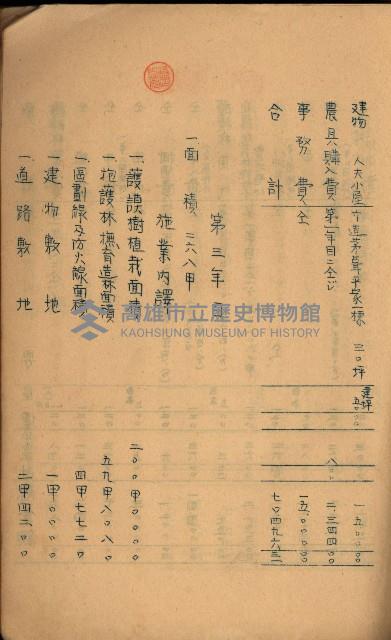 建物 人夫小屋 木造茅葺平家 三〇坪 建坪 五〇〇〇 一五〇〇〇〇
農具購入費 第一年目ニ仝シ 八〇〇 二、三四四〇〇
事務費 仝 一五、〇〇〇〇〇
合計 七〇四九六三一
第三年目
施業內譯
一、面積 二六八甲
一、護謨樹植栽面積 二〇〇甲〇〇〇〇
一、抱護林撫育造林面積 五九甲八〇八〇
一、區劃線及防火線面積 四甲七七二〇
一、建物敷地 一甲〇〇〇〇
一、道路敷地 二甲四二〇〇
高雄市立歷史博物館
KAOHSIUNG MUSEUM OF HISTORY